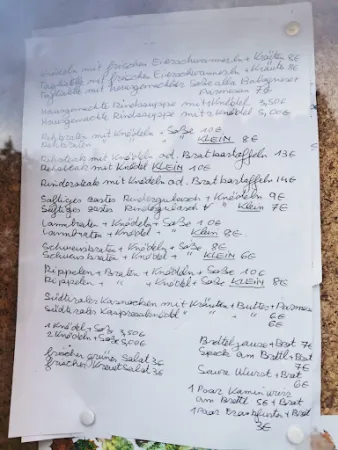 Knödeln mit frischen Eierschwammerln + Kräuter 8€
Tagliatelle mit frischen Eierschwammerln + Kräuter 11€
Tagliatelle mit hausgemachter Soße alla Bolognese +
Parmesan 7€
Hausgemachte Rindssuppe mit 1 Knödel 3,50€
Hausgemachte Rindssuppe mit 2 Knödel 5,00€
Rehbraten mit Knödeln + Soße 10€
Rehbraten " " KLEIN 8€
Rehsteak mit Knödeln od. Bratkartoffeln 13€
Rehsteak mit Knödel KLEIN 10€
Rindersteak mit Knödeln od. Bratkartoffeln 14€
Saftiges zartes Rindsgulasch + Knödeln 9€
Saftiges zartes Rindsgulasch + " KLEIN 7€
Lammbraten + Knödeln + Soße 10€
Lammbraten + Knödel + " KLEIN 8€
Schweinsbraten + Knödeln + Soße 8€
Schweinsbraten + Knödel + " KLEIN 6€
Rippelen + Braten + Knödeln + Soße 10€
Rippelen + " + Knödel + Soße KLEIN 8€
Südtiroler Kasnocken mit Kräutern + Butter + Parmesan
6€
Südtiroler " " " 6€
1 Knödel + Soße 3,50€
2 Knödel + Soße 5,00€
frischer grüner Salat 3€
frischer Kraut Salat 3€
Brettljause + Brot 7€
Speck am Brettl + Brot
7€
Saure Wurst + Brot
6€
1 Paar Kaminwurz
am Brettl 5€ + Brot
1 Paar Frankfurter + Brot
3€